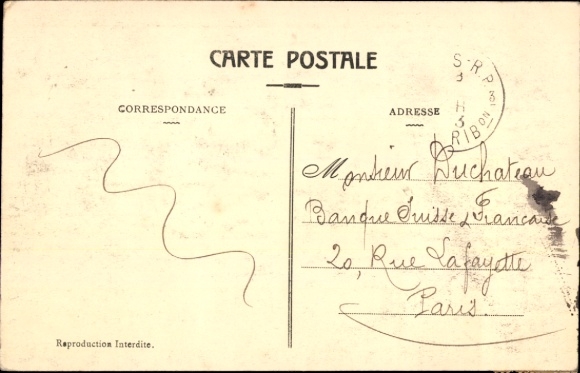 CARTE POSTALE
CORRESPONDANCE
ADRESSE
S.R.P.
3
RIB on
Monsieur Duchateau
Banque Suisse & Française
20, Rue Lafayette
Paris.
Reproduction Interdite.